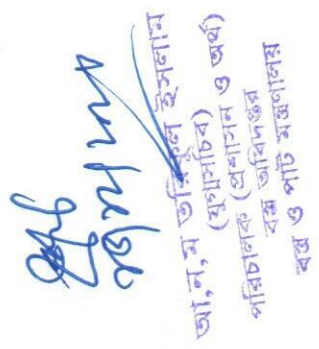 আ,ন,ম তরিকুল ইসলাম
(যুগ্মসচিব)
পরিচালক (প্রশাসন ও অর্থ)
বস্ত্র অধিদপ্তর
বস্ত্র ও পাট মন্ত্রণালয়